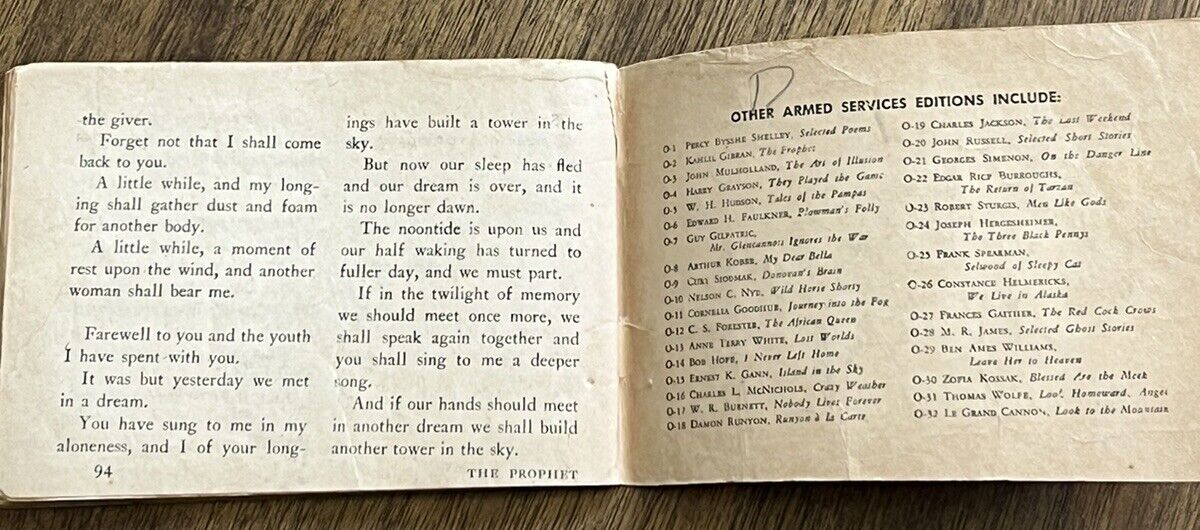 the giver.
Forget not that I shall come
back to you.
A little while, and my long-
ing shall gather dust and foam
for another body.
A little while, a moment of
rest upon the wind, and another
woman shall bear me.
Farewell to you and the youth
I have spent with you.
It was but yesterday we met
in a dream.
You have sung to me in my
aloneness, and I of your long-
94
ings have built a tower in the
sky.
But now our sleep has fled
and our dream is over, and it
is no longer dawn.
The noontide is upon us and
our half waking has turned to
fuller day, and we must part.
If in the twilight of memory
we should meet once more, we
shall speak again together and
you shall sing to me a deeper
song.
And if our hands should meet
in another dream we shall build
another tower in the sky.
THE PROPHET
D
OTHER ARMED SERVICES EDITIONS INCLUDE:
O-1 PERCY BYSSHE SHELLEY, Selected Poems
O-2 KAHLIL GIBRAN, The Prophet
O-3 JOHN MULHOLLAND, The Art of Illusion
O-4 HARRY GRAYSON, They Played the Game
O-5 W. H. HUDSON, Tales of the Pampas
O-6 EDWARD H. FAULKNER, Plowman's Folly
O-7 GUY GILPATRIC,
Mr. Glencannon Ignores the War
O-8 ARTHUR KOBER, My Dear Bella
O-9 CURT SIODMAK, Donovan's Brain
O-10 NELSON C. NYE, Wild Horse Shorty
O-11 CORNELIA GOODHUE, Journey into the Fog
O-12 C. S. FORESTER, The African Queen
O-13 ANNE TERRY WHITE, Lost Worlds
O-14 BOB HOPE, I Never Left Home
O-15 ERNEST K. GANN, Island in the Sky
O-16 CHARLES L. MCNICHOLS, Crazy Weather
O-17 W. R. BURNETT, Nobody Lives Forever
O-18 DAMON RUNYON, Runyon à la Carte
O-19 CHARLES JACKSON, The Lost Weekend
O-20 JOHN RUSSELL, Selected Short Stories
O-21 GEORGES SIMENON, On the Danger Line
O-22 EDGAR RICE BURROUGHS,
The Return of Tarzan
O-23 ROBERT STURGIS, Men Like Gods
O-24 JOSEPH HERGESHEIMER,
The Three Black Pennys
O-25 FRANK SPEARMAN,
Selwood of Sleepy Cat
O-26 CONSTANCE HELMERICKS,
We Live in Alaska
O-27 FRANCES GAITHER, The Red Cock Crows
O-28 M. R. JAMES, Selected Ghost Stories
O-29 BEN AMES WILLIAMS,
Leave Her to Heaven
O-30 ZOFIA KOSSAK, Blessed Are the Meek
O-31 THOMAS WOLFE, Look Homeward, Angel
O-32 LE GRAND CANNON, Look to the Mountain